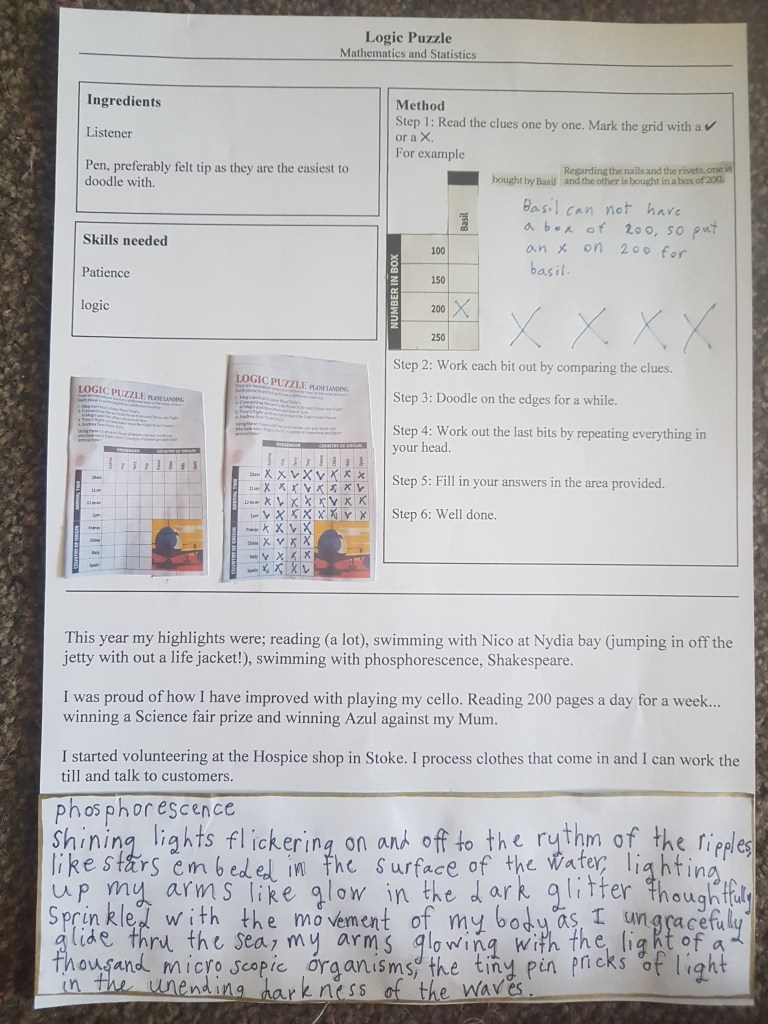 Logic Puzzle
Mathematics and Statistics
Ingredients
Listener
Pen, preferably felt tip as they are the easiest to
doodle with.
Skills needed
Patience
logic
Method
Step 1: Read the clues one by one. Mark the grid with a ✔
or a X.
For example
bought by Basil
Regarding the nails and the rivets, one is
and the other is bought in a box of 200.
Basil
NUMBER IN BOX
100
150
200 X
250
Basil can not have
a box of 200, so put
an x on 200 for
basil.
X X X X
Step 2: Work each bit out by comparing the clues.
Step 3: Doodle on the edges for a while.
Step 4: Work out the last bits by repeating everything in
your head.
Step 5: Fill in your answers in the area provided.
Step 6: Well done.
LOGIC PUZZLE PLANE LANDING
PASSENGER COUNTRY OF ORIGIN
ARRIVAL TIME
10am
11am
12 noon
1pm
COUNTRY OF ORIGIN
France
China
Italy
Spain
LOGIC PUZZLE PLANE LANDING
PASSENGER COUNTRY OF ORIGIN
ARRIVAL TIME
10am
11am
12 noon
1pm
COUNTRY OF ORIGIN
France
China
Italy
Spain
This year my highlights were; reading (a lot), swimming with Nico at Nydia bay (jumping in off the
jetty with out a life jacket!), swimming with phosphorescence, Shakespeare.
I was proud of how I have improved with playing my cello. Reading 200 pages a day for a week...
winning a Science fair prize and winning Azul against my Mum.
I started volunteering at the Hospice shop in Stoke. I process clothes that come in and I can work the
till and talk to customers.
phosphorescence
Shining lights flickering on and off to the rythm of the ripples,
like stars embeded in the surface of the water, lighting
up my arms like glow in the dark glitter thoughtfully
Sprinkled with the movement of my body as I ungracefully
glide thru the sea, my arms glowing with the light of a
thousand micro scopic organisms, the tiny pin pricks of light
in the unending darkness of the waves.